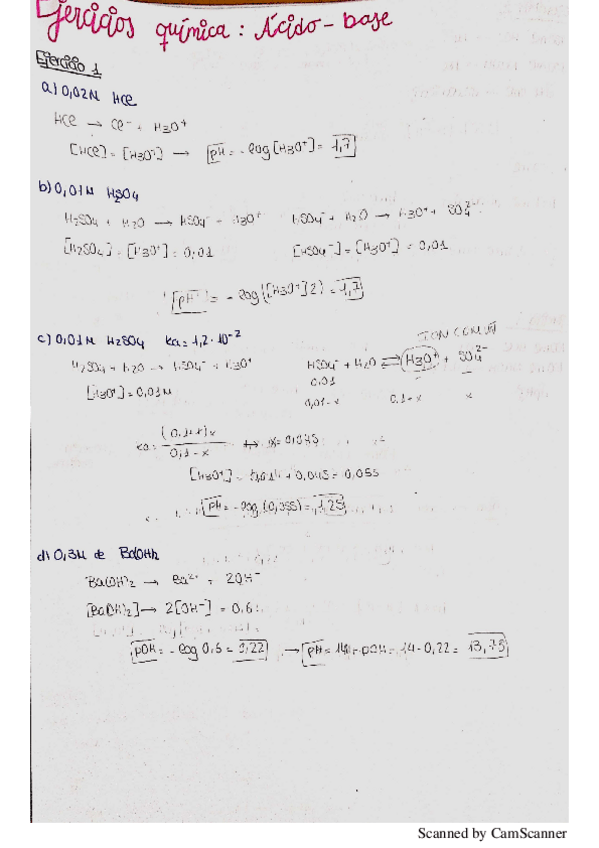 Ejercicios química: Ácido-base
Ejercicio 1
a) 0,02M HCl
HCl → Cl⁻ + H3O⁺
[HCl] = [H3O⁺] → pH = -log[H3O⁺] = 1,7
b) 0,01M H2SO4
H2SO4 + H2O → HSO4⁻ + H3O⁺ HSO4⁻ + H2O → H3O⁺ + SO4²⁻
[H2SO4] = [H3O⁺] = 0,01 [HSO4⁻] = [H3O⁺] = 0,01
pH = -log([H3O⁺]2) = 1,7
c) 0,01M H2SO4 Ka = 1,2·10⁻²
ION COMÚN
H2SO4 + H2O → HSO4⁻ + H3O⁺ HSO4⁻ + H2O ⇌ H3O⁺ + SO4²⁻
[H3O⁺] = 0,01M 0,01
0,01-x 0.1-x x
Ka = (0,1+x)x / 0,1-x → x = 0,045
[H3O⁺] = 0,01 + 0,045 = 0,055
pH = -log(0,055) = 1,25
d) 0,3M de Ba(OH)2
Ba(OH)2 → Ba²⁺ + 2OH⁻
[Ba(OH)2] → 2[OH⁻] = 0,6
pOH = -log 0,6 = 0,22 → pH = 14 - pOH = 14 - 0,22 = 13,78
Scanned by CamScanner